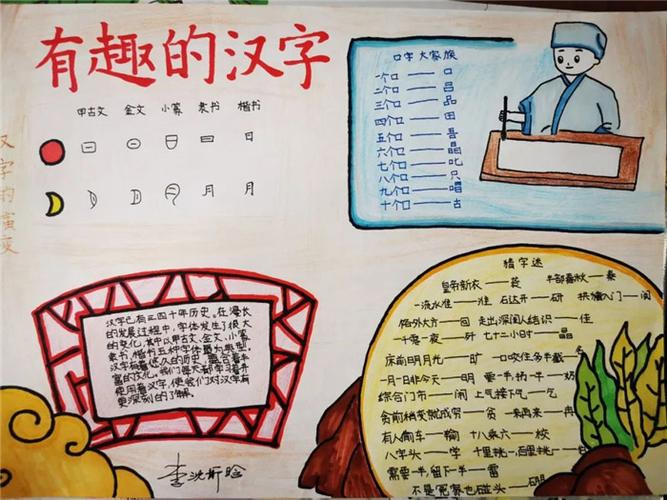 有趣的汉字
甲古文 金文 小篆 隶书 楷书
日 日
月 月
汉字的演变
口字大家族
一个口——口
二个口——吕
三个口——品
四个口——田
五个口——吾
六个口——晶
七个口——叱
八个口——只
九个口——唱
十个口——古
汉字已有三四千年历史,在漫长
的发展过程中,字体发生了很大
的变化,其中以甲古文、金文、小篆
隶书、楷书五种字体最为典型。
汉字有着悠久的历史
富的文化。我们每天都学习着并
使用着汉字,使我们对汉字有
更深刻的了解。
猜字迷
皇帝新衣——袭 半部春秋——秦
一流水准——淮 石达开——研 拱猪入门——阂
格外大方——回 走出深闺人结识——佳
一千零一夜——歼 七十二小时——晶
床前明月光——旷 一口咬住多半截——名
一月一日非今天——明 要一半,扔一半——奶
综合门市——闹 上气接下气——乞
贪前稍变就成穷——贫 一来再来——冉
有人偷车——输 十八乘六——校
八字头——学 十里桃一
需要一半,留下一半——雷
不是冤家也碰头——硼